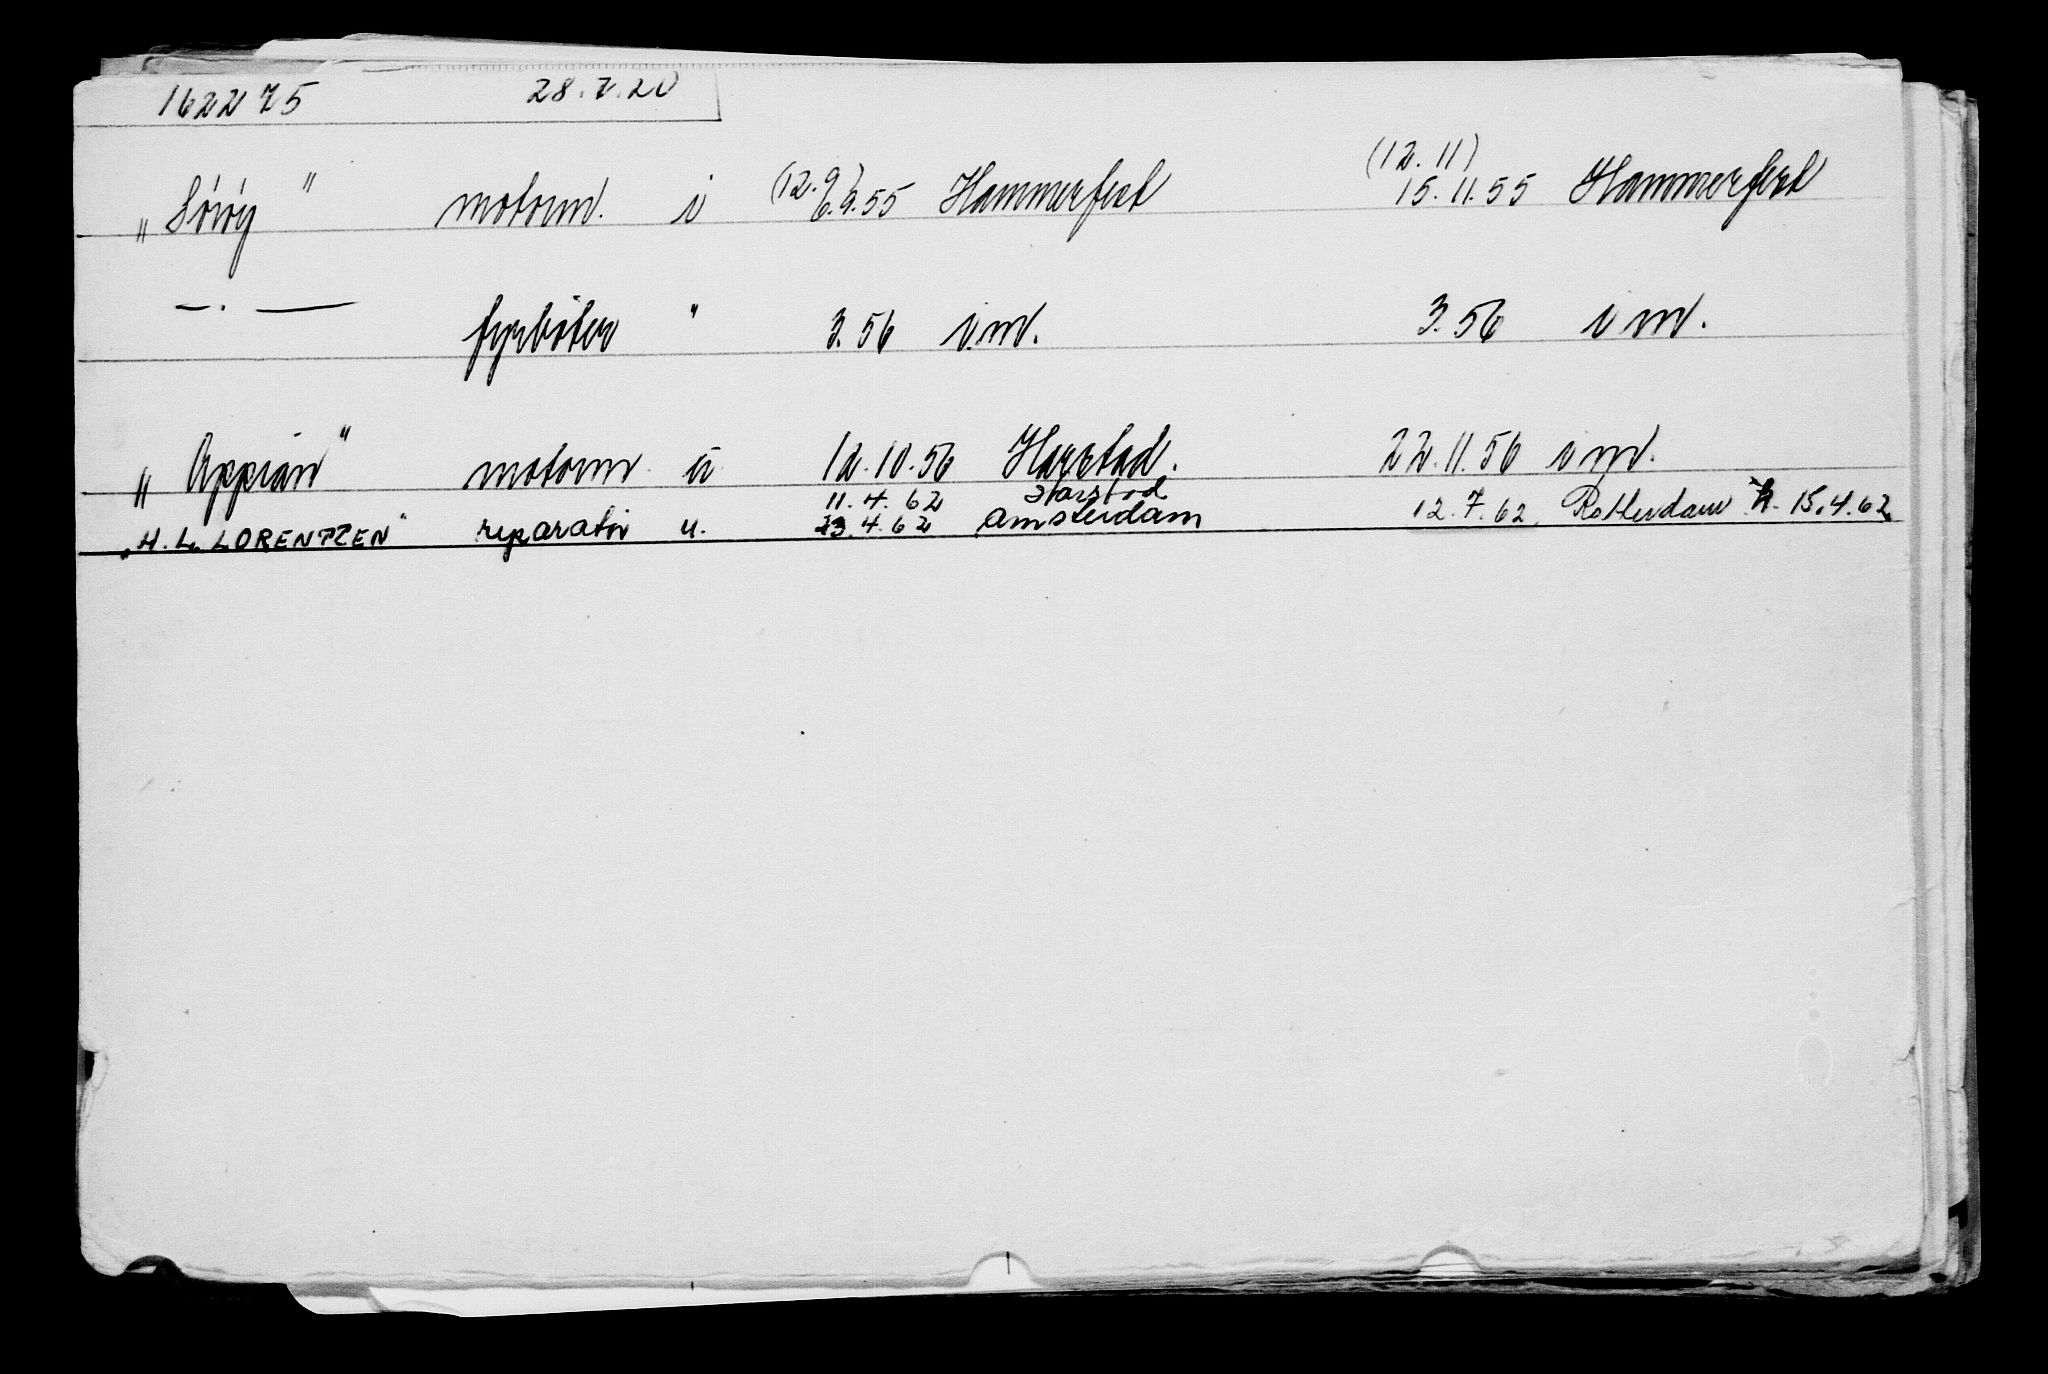 162275 28.7.20
(12.9) (12.11)
„Sørøy" motorm. i 6.9.55 Hammerfest 15.11.55 Hammerfest
—·— fyrbøter " 3.56 i.m. 3.56 i m.
„Appian" motorm. u 12.10.56 Harstad. 22.11.56 i m.
11.4.62 Harstad
„H. L. LORENTZEN" reparatør u. 13.4.62 Amsterdam 12.7.62 Rotterdam h. 15.4.62